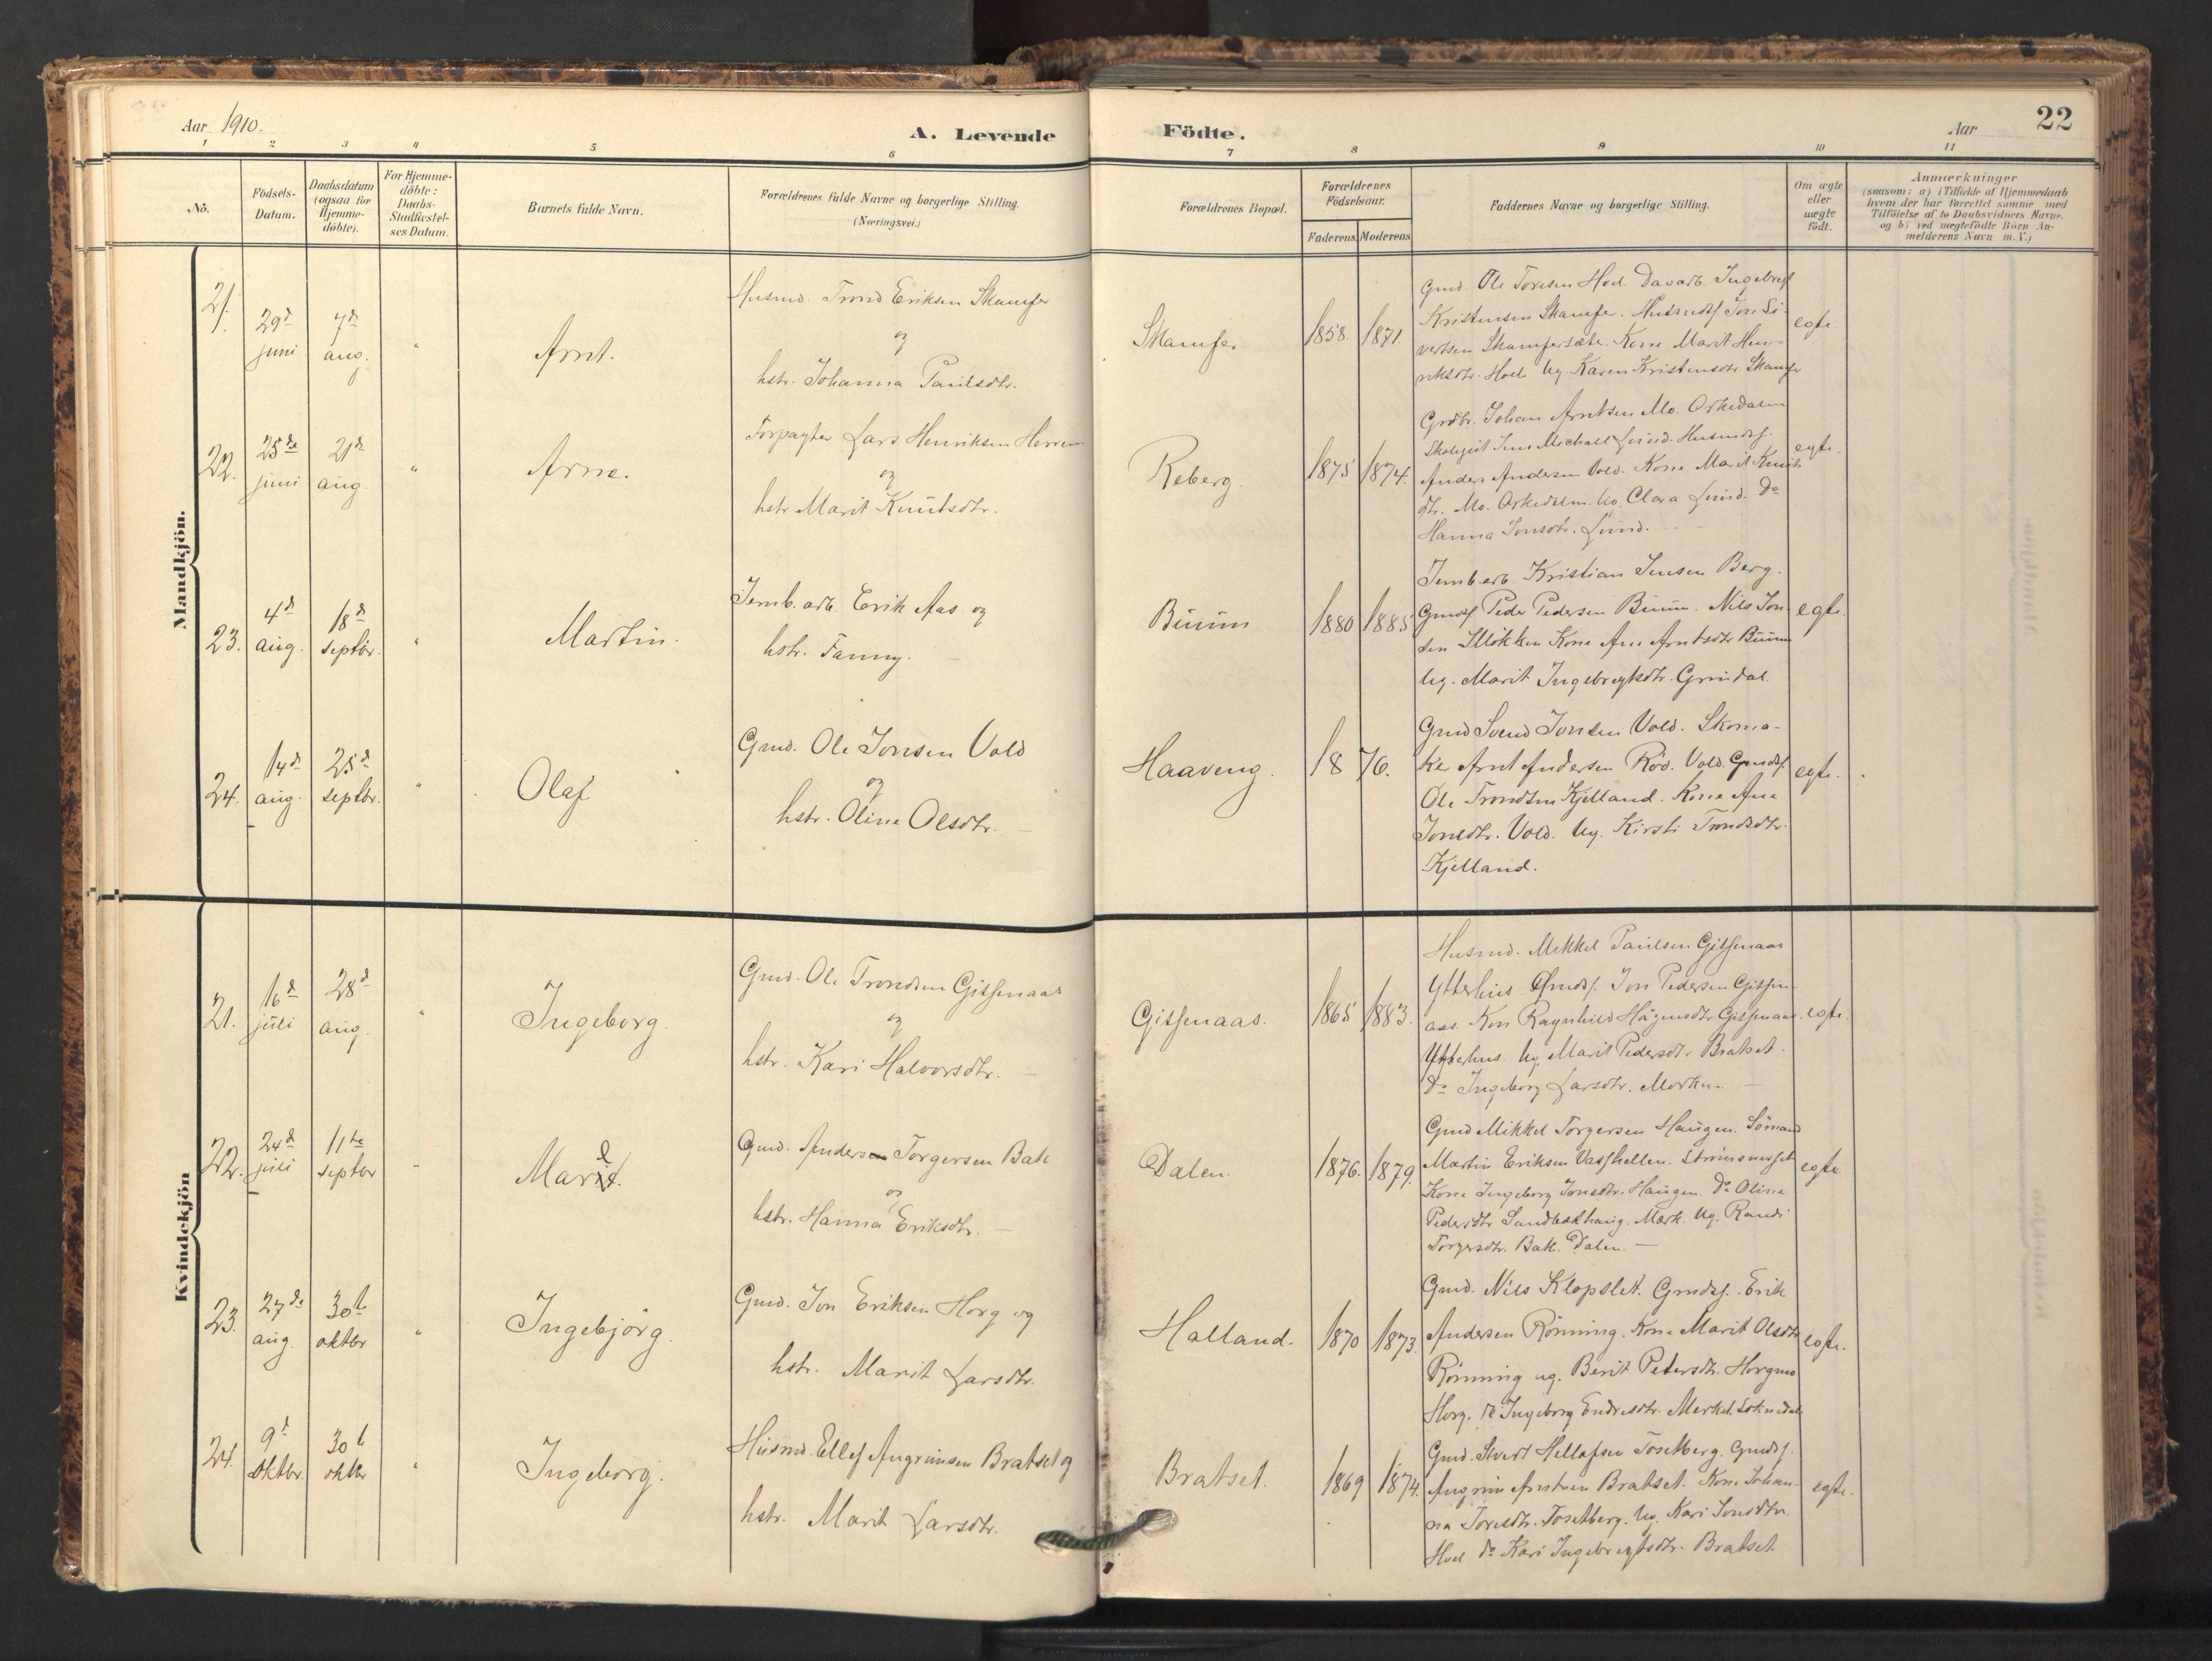 Aar 1910.
A. Levende
Födte.
Aar
22
1 2 3 4 5 6 7 8 9 10 11
No.
Födsels-
Datum.
Daabsdatum
(ogsaa for
Hjemme-
döbte).
For Hjemme-
döbte:
Daabs-
Stadfæstel-
ses Datum.
Barnets fulde Navn.
Forældrenes fulde Navne og borgerlige Stilling.
(Næringsvei.)
Forældrenes Bopæl.
Forældrenes
Födselsaar.
Faderens. Moderens.
Faddernes Navne og borgerlige Stilling.
Om ægte
eller
uægte
födt.
Anmærkninger
(saasom: a) i Tilfælde af Hjemmedaab
hvem der har forrettet samme med
Tilföielse af to Daabsvidners Navne.
og b) ved uægtefödte Börn An-
melderens Navn m. V.)
Mandkjön.
21.
29d
juni
7d
aug.
"
Arnt.
Husmd. Trond Eriksen Skamfer
og
hstr. Johanna Paulsdtr.
Skamfer
1858. 1871.
Gmd. Ole Toresen Hoel. Dagarb. Ingebrigt
Kristensen Skamfer. Husmdsf. Jon Si-
vertsen Skamfersæte. Kone Marit Hen-
riksdtr. Hoel Ug. Karen Kristensdtr. Skamfer
egte.
22.
25de
juni
21d
aug.
"
Arne.
Forpagter Lars Henriksen Herrem
og
hstr Marit Knutsdtr.
Reberg.
1875 1874.
Grdbr. Johan Arntsen Mo. Orkedalen
Jens Michael Lund. Husmdsf.
Anders Andersen Vold. Kone Marit Knuts
dtr. Mo. Orkedalen. Ug. Clara Lund. Do
Hanna Jonsdtr. Lund.
egte.
23.
4d
aug.
18d
septbr.
"
Martin.
Jernb. arb. Erik Aas og
hstr. Fanny.
Buum
1880 1885
Jernb. arb. Kristian Jensen Berg.
Gmdsf. Peder Pedersen Buum. Nils Jon-
sen Mökken Kone Ane Arntsdtr Buum
Ug. Marit Ingebrigtsdtr. Grindal.
egte.
24.
14d
aug.
25d
septbr.
"
Olaf
Gmd. Ole Jonsen Vold
og
hstr. Oline Olsdtr.
Haaveng.
1876.
Gmd Svend Jonsen Vold. Skoma-
ker Arnt Andersen Röd. Vold. Gmdsf.
Ole Trondsen Kjelland. Kone Ane
Jonsdtr. Vold. Ug. Kirsti Trondsdtr.
Kjelland.
egte.
Kvindekjön
21.
16d
juli
28d
aug.
"
Ingeborg
Gmd. Ole Trondsen Gisfenaas
og
hstr. Kari Halvorsdtr.
Gisfenaas.
1865 1883.
Husmd. Mikkel Paulsen Gisfenaas
Ytterhus. Gmdsf. Jon Pedersen Gisfen-
aas. Kone Ragnhild Hågensdtr. Gisfenaas.
Ytterhus. Ug. Marit Pedersdtr. Bratset.
Do Ingeborg Larsdtr. Morken.
egte.
22.
24d
juli
11te
septbr
"
Marit.
Gmd. Anders Torgersen Bak
og
hstr. Hanna Eriksdtr.
Dalen.
1876. 1879.
Gmd Mikkel Torgersen Haugen. Sömand
Martin Eriksen Vasshellen. Strinsmesset
Kone Ingeborg Jonsdtr. Haugen. Do Oline
Pedersdtr Sundbakhaug. Mærk. Ug. Randi
Torgersdtr. Bak. Dalen.
egte
23.
27de
aug.
30t
oktbr
"
Ingebjörg.
Gmd. Jon Eriksen Horg og
hstr. Marit Larsdtr.
Halland.
1870 1873.
Gmd. Nils Klopslet. Gmdsf. Erik
Andersen Rönning. Kone Marit Olsdtr
Rönning ug. Berit Petersdtr. Horgmo
Horg. do Ingeborg Endresdtr. Merket. Soknedal
egte.
24.
9d
oktbr.
30t
oktbr
"
Ingeborg.
Husmd. Ellef Angrimsen Bratset og
hstr. Marit Larsdtr.
Bratset.
1869 1874.
Gmd. Sivert Hellafsen Tosetberg. Gmdsf.
Angrim Arntsen Bratset. Kone Johan-
na Toresdtr. Tosetberg. Ug. Kari Jonsdtr.
Hoel do Kari Ingebrigtsdtr. Bratset
egte.